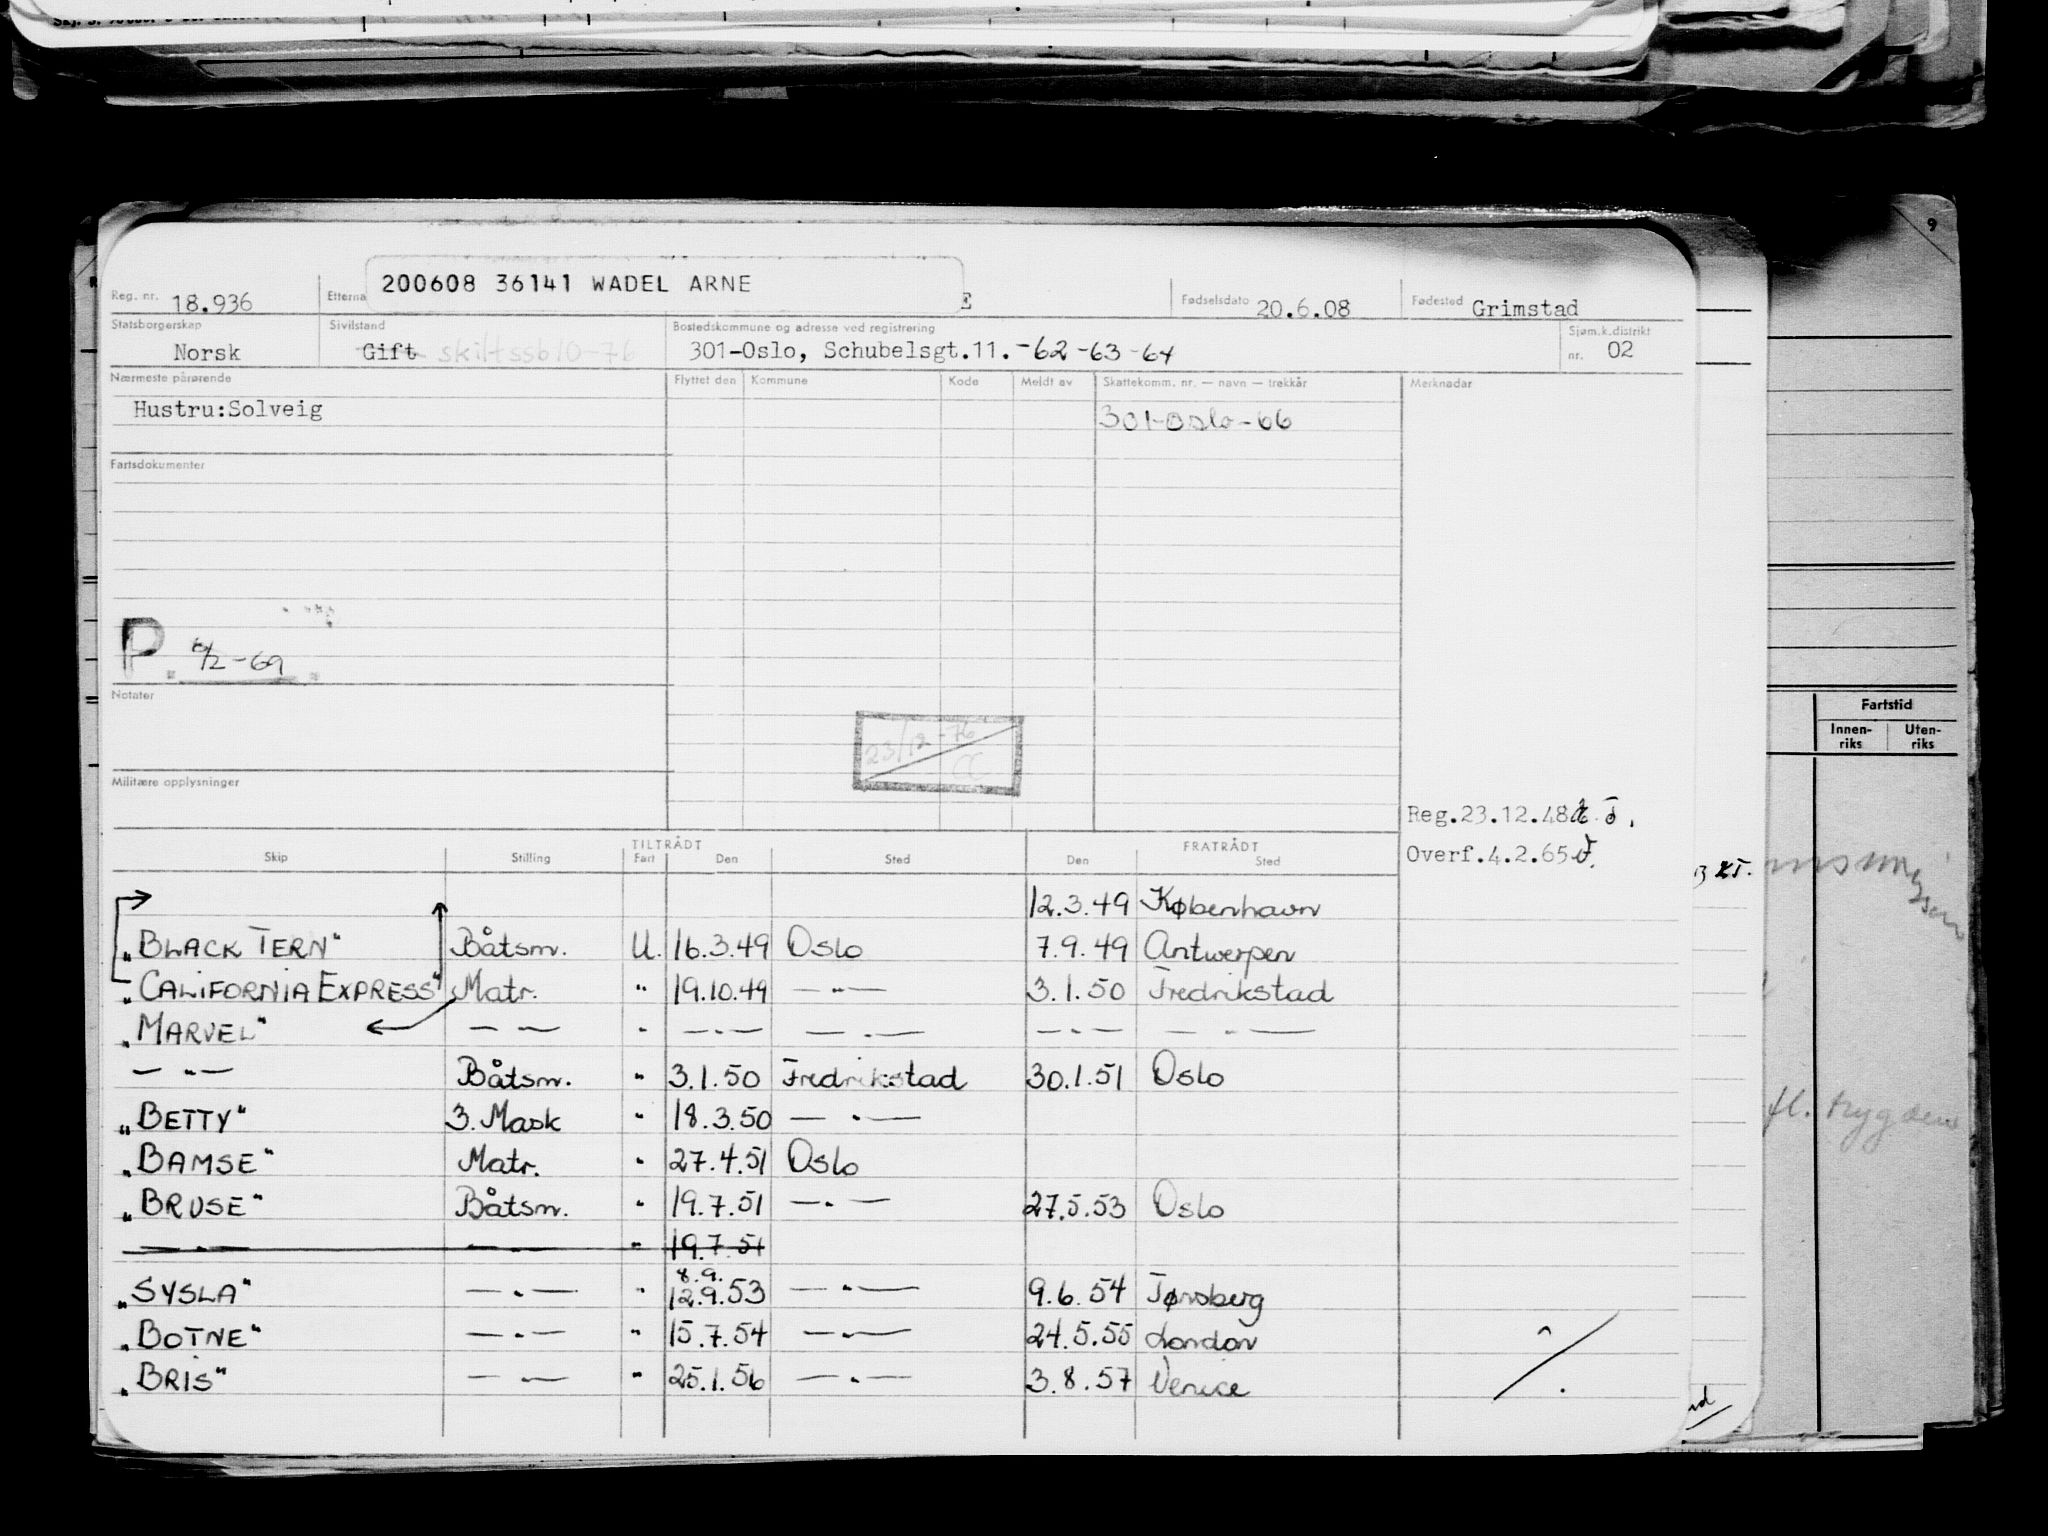 200608 36141 WADEL ARNE
Reg. nr. 18.936 Etterna E Fødselsdato 20.6.08 Fødested Grimstad
Statsborgerskap Sivilstand Bostedskommune og adresse ved registrering Sjøm.k.distrikt
Norsk Gift skilt ssb 10-76 301-Oslo, Schubelsgt.11.-62-63-64 nr. 02
Nærmeste pårørende Flyttet den Kommune Kode Meldt av Skattekomm. nr. — navn — trekkår Merknader
Hustru:Solveig 301-Oslo-66
Fartsdokumenter
P. 6/2-69
Notater
23/12-76
CC
Militære opplysninger
Reg.23.12.48
Overf.4.2.65
TILTRÅDT FRATRÅDT
Skip Stilling Fart Den Sted Den Sted
12.3.49 København
„BLACK TERN" Båtsm. U. 16.3.49 Oslo 7.9.49 Antwerpen
„CALIFORNIA EXPRESS" Matr. " 19.10.49 — " — 3.1.50 Fredrikstad
„MARVEL" — — " — " — — " — — " — — " —
— " — Båtsm. " 3.1.50 Fredrikstad 30.1.51 Oslo
„BETTY" 3. Mask " 18.3.50 — " —
„BAMSE" Matr. " 27.4.51 Oslo
„BRUSE" Båtsm. " 19.7.51 — " — 27.5.53 Oslo
— " — — " — " 19.7.51
8.9.
„SYSLA" — " — " 12.9.53 — " — 9.6.54 Tønsberg
„BOTNE" — " — " 15.7.54 — " — 24.5.55 London
„BRIS" — " — " 25.1.56 — " — 3.8.57 Venice
9
Fartstid
Innen-
riks
Uten-
riks
fl. trygden